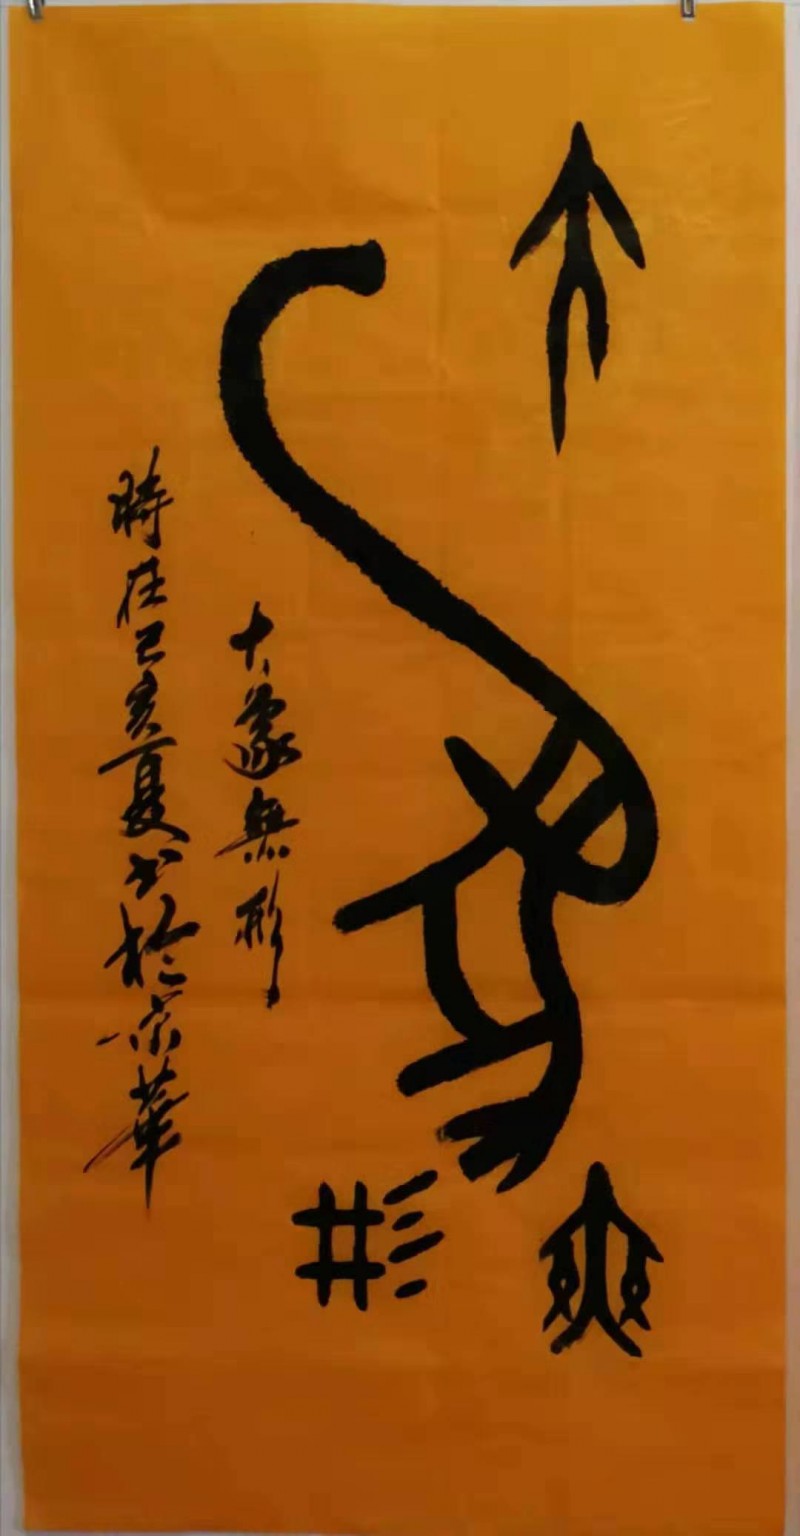 大象無形
大象無形
時在己亥夏書於京華